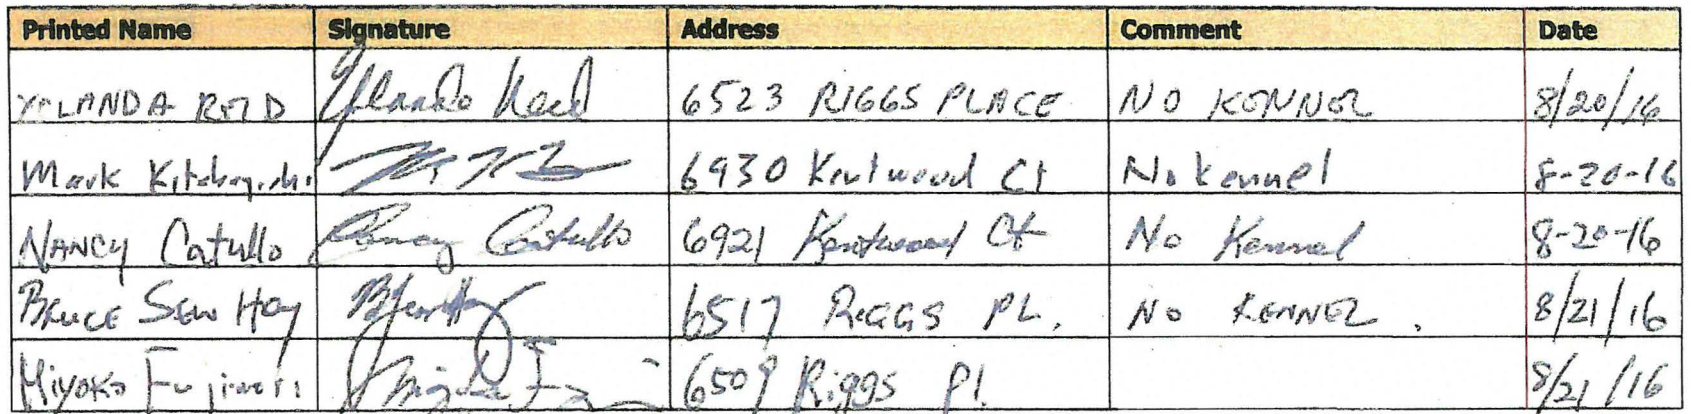 Printed Name Signature Address Comment Date
YOLANDA REID Yolanda Reid 6523 RIGGS PLACE NO KENNEL 8/20/16
Mark 6930 Kentwood Ct No kennel 8-20-16
NANCY Catullo Nancy Catullo 6921 Kentwood Ct No Kennel 8-20-16
BRUCE SEW HOY 6517 RIGGS PL. NO KENNEL. 8/21/16
Miyoko Fujimori 6509 Riggs Pl 8/21/16